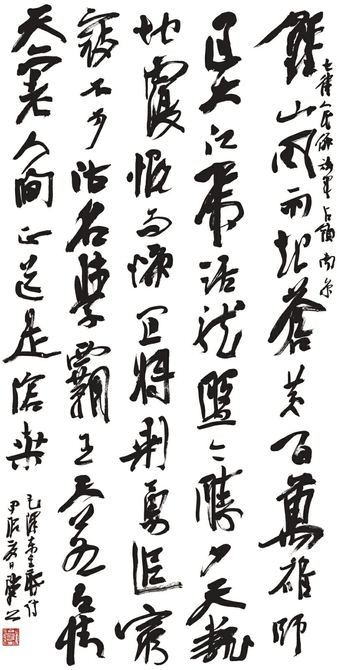 七律人民解放军占领南京
鍾山风雨起蒼黄百萬雄师
过大江虎踞龙盤今勝夕天翻
地覆慨而慷宜将剩勇追窮
寇不可沽名學霸王天若有情
天亦老人间正道是滄桑
毛澤东主席诗
甲辰